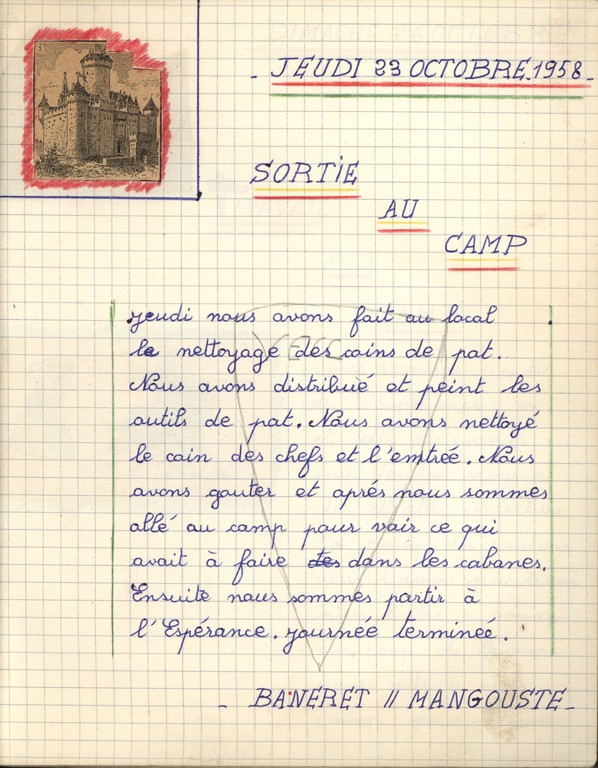 - JEUDI 23 OCTOBRE.1958-
SORTIE
AU
CAMP
Jeudi nous avons fait au local
le nettoyage des coins de pat.
Nous avons distribué et peint les
outils de pat. Nous avons nettoyé
le coin des chefs et l'emtrée. Nous
avons gouter et aprés nous sommes
allé au camp pour voir ce qui
avait à faire des dans les cabanes.
Ensuite nous sommes partir à
l'Espérance. Journée terminée.
- BANERET // MANGOUSTE-